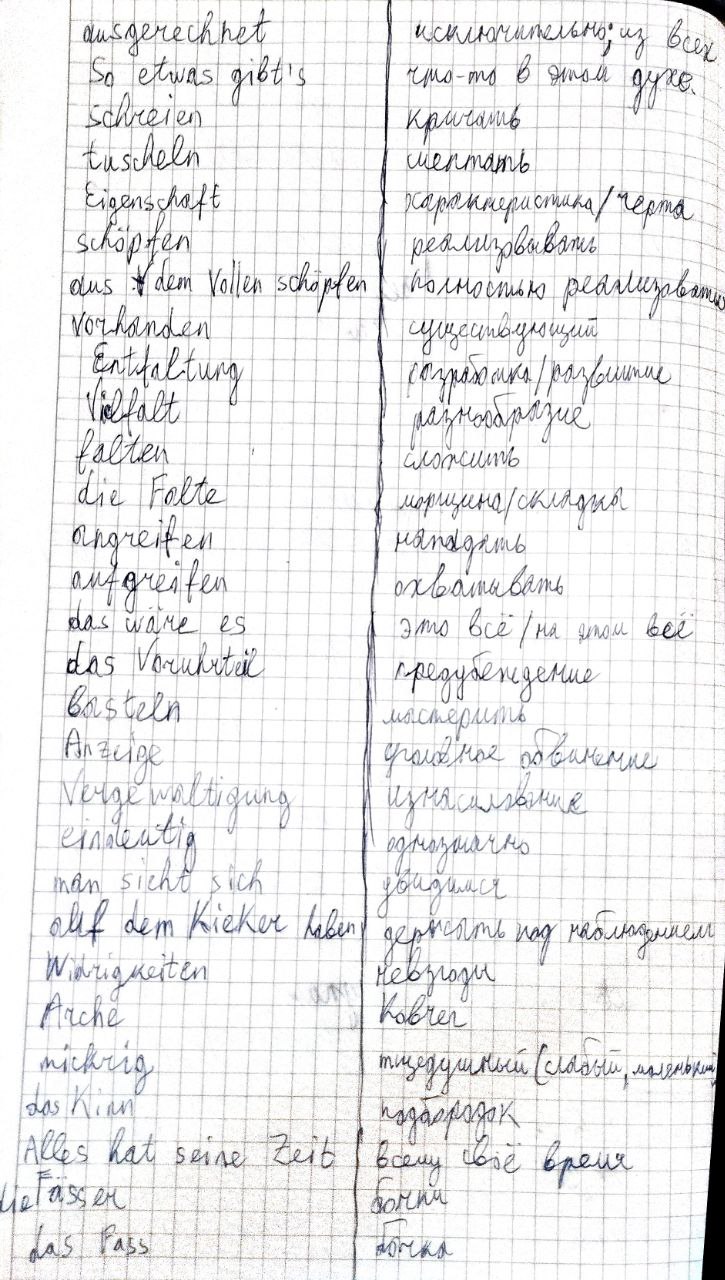 ausgerechnet исключительно; из всех
So etwas gibt's что-то в этом духе.
schreien кричать
tuscheln шептать
Eigenschaft характеристика/черта
schöpfen реализовывать
aus dem Vollen schöpfen полностью реализовать
vorhanden существующий
Entfaltung разработка/развитие
Vielfalt разнообразие
falten сложить
die Falte морщина/складка
angreifen нападать
aufgreifen охватывать
das wäre es это всё/на этом всё
das Voruhrteil предубеждение
basteln мастерить
Anzeige уголовное обвинение
Vergewaltigung изнасилование
eindeutig однозначно
man sieht sich увидимся
auf dem Kieker haben держать под наблюдением
Widrigkeiten невзгоды
Arche Ковчег
mickrig тщедушный (слабый, маленький)
das Kinn подбородок
Alles hat seine Zeit всему своё время
die Fässer бочки
das Fass бочка